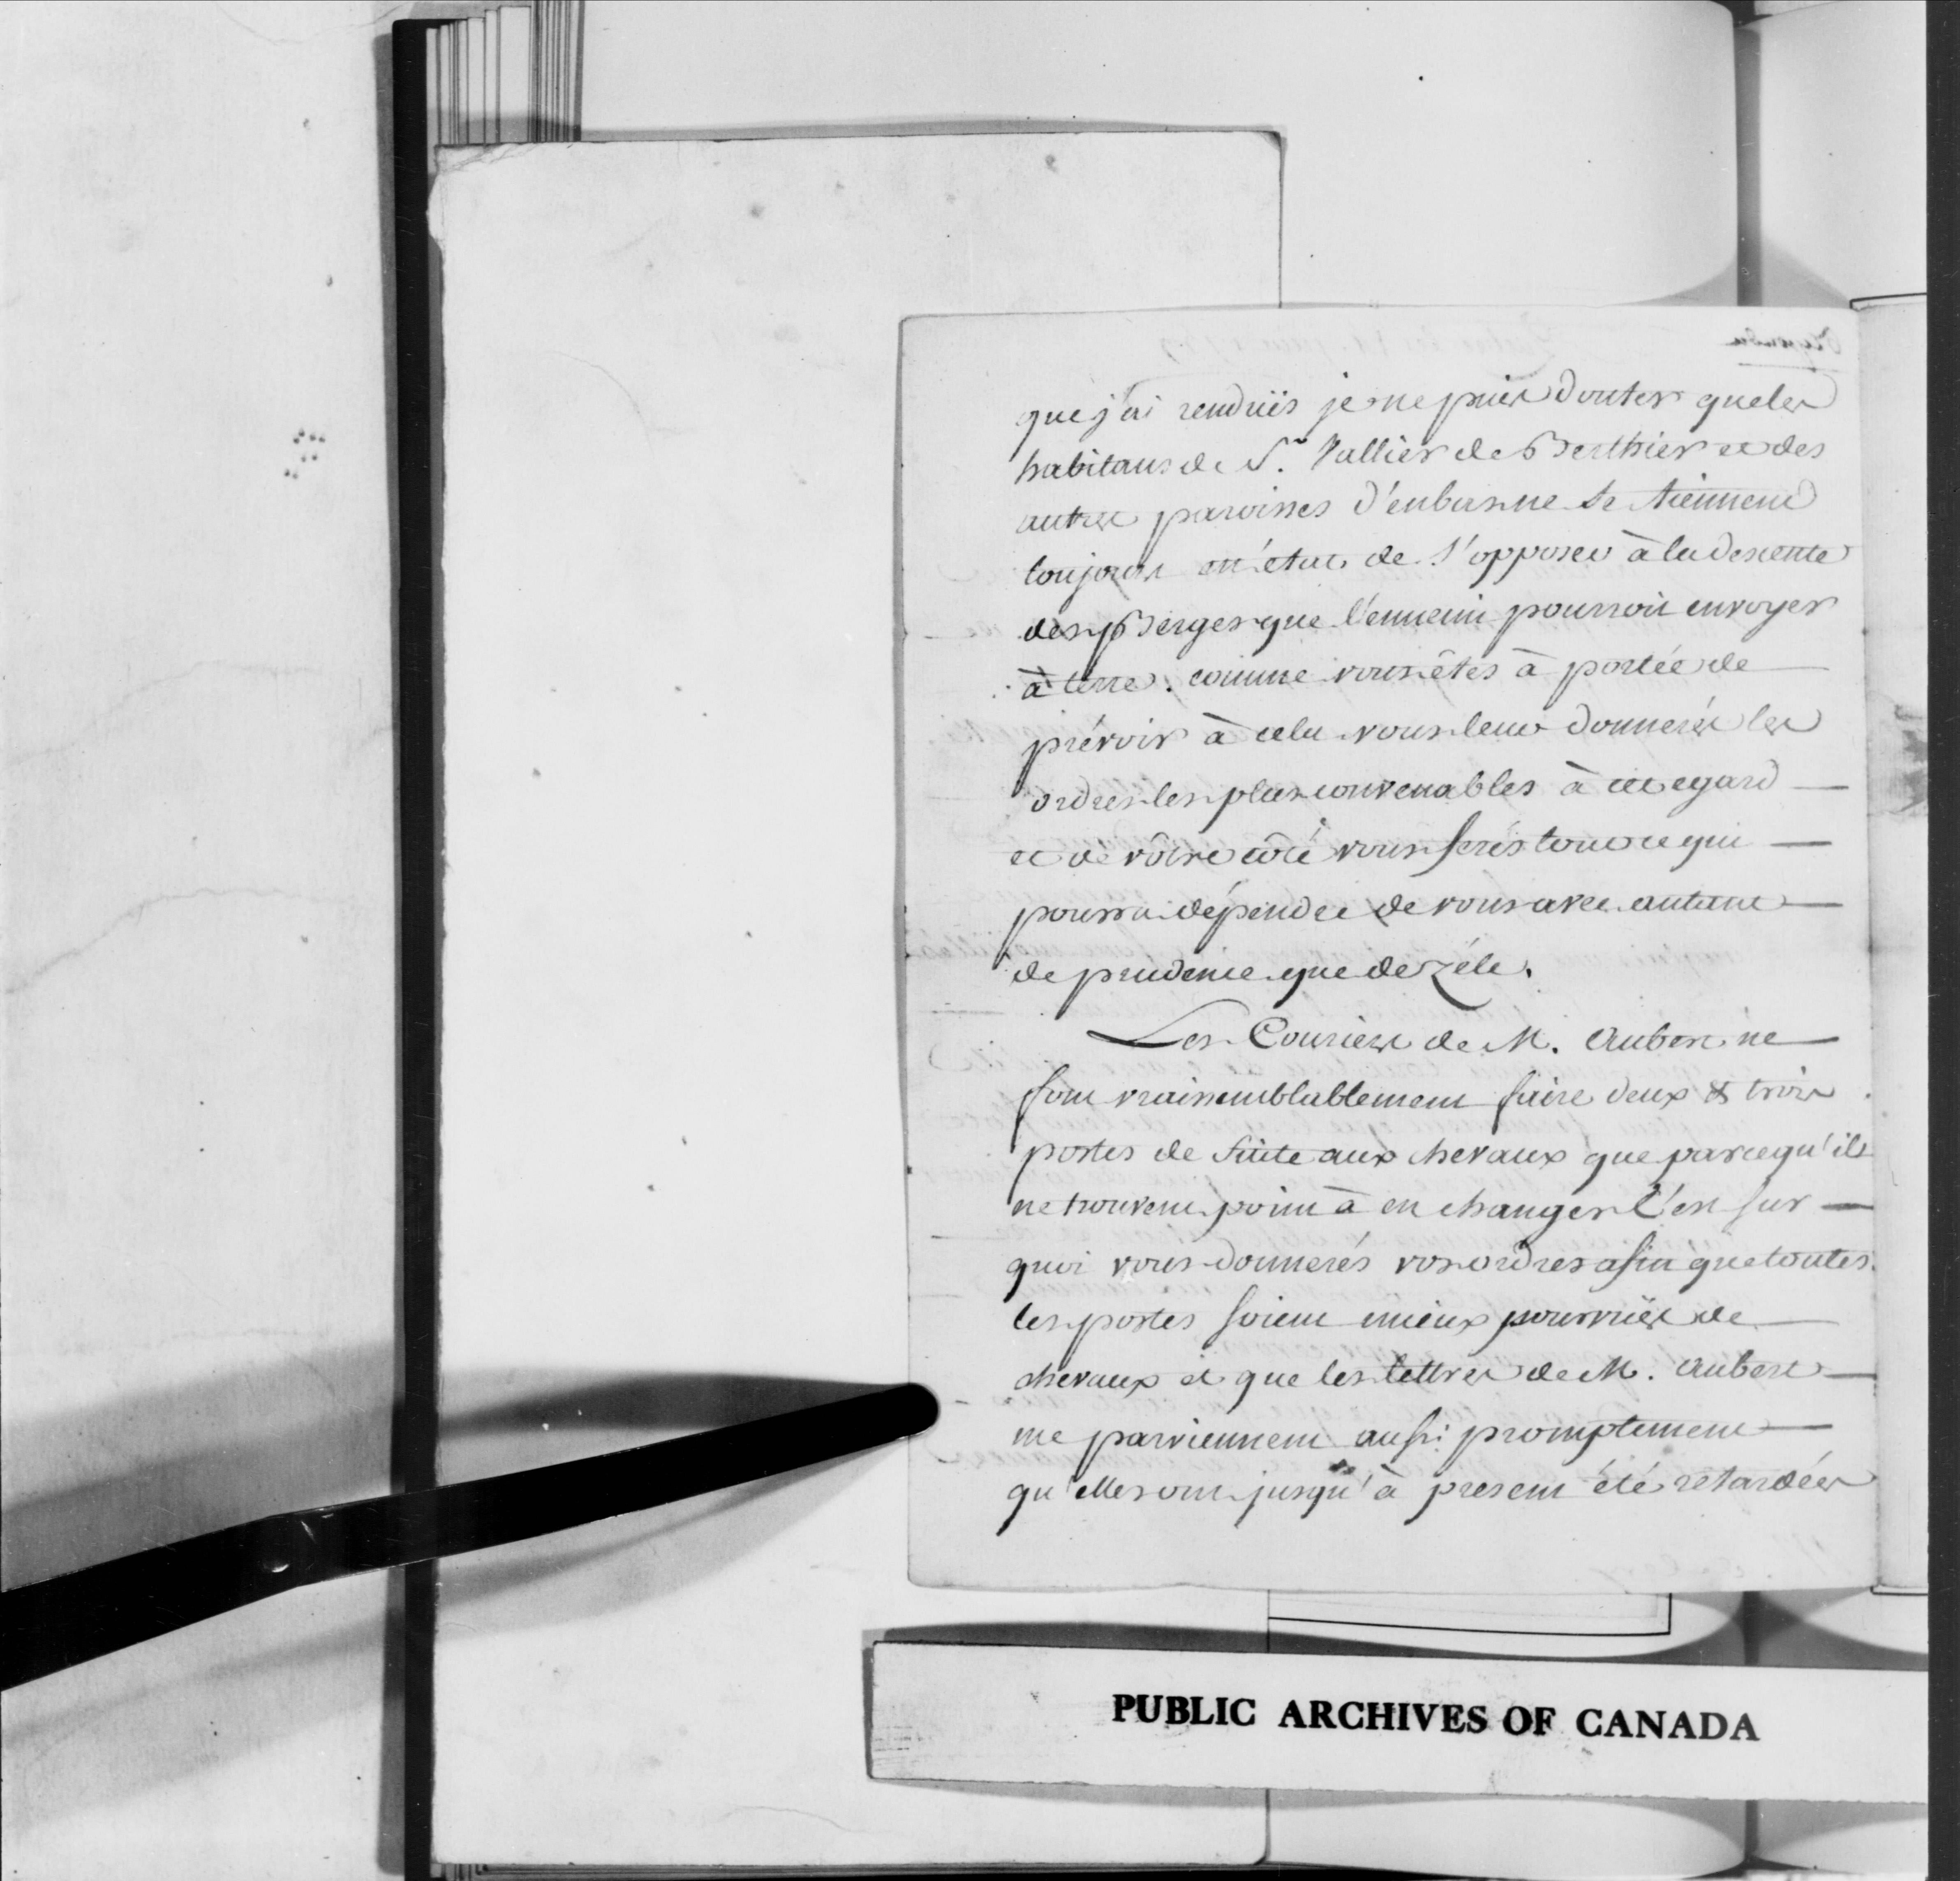 que j'ai renduës je ne puis douter que les
habitans de St. Vallier de Berthier et des
autres paroisses d'enbas ne se tiennent
toujours en état de s'opposer à la descente
des Berges que l'ennemi pourroit envoyer
à terre. comme vous êtes à portée de
prévoir à cela vous leur donnerés les
ordres les plus convenables à cet egard
et de vôtre côté vous ferés tout ce qui
pourra dépendre de vous avec autant
de prudence que de zéle.
Les Couriers de M. Aubert ne
font vraisemblablement faire deux & trois
postes de suite aux chevaux que parcequ'ils
ne trouvent point à en changer C'est sur
quoi vous donnerés vos ordres afin que toutes
les postes soient mieux pourvuës de
chevaux et que les lettres de M. Aubert
me parviennent aussi promptement
qu'elles ont jusqu'à present été retardées
PUBLIC ARCHIVES OF CANADA